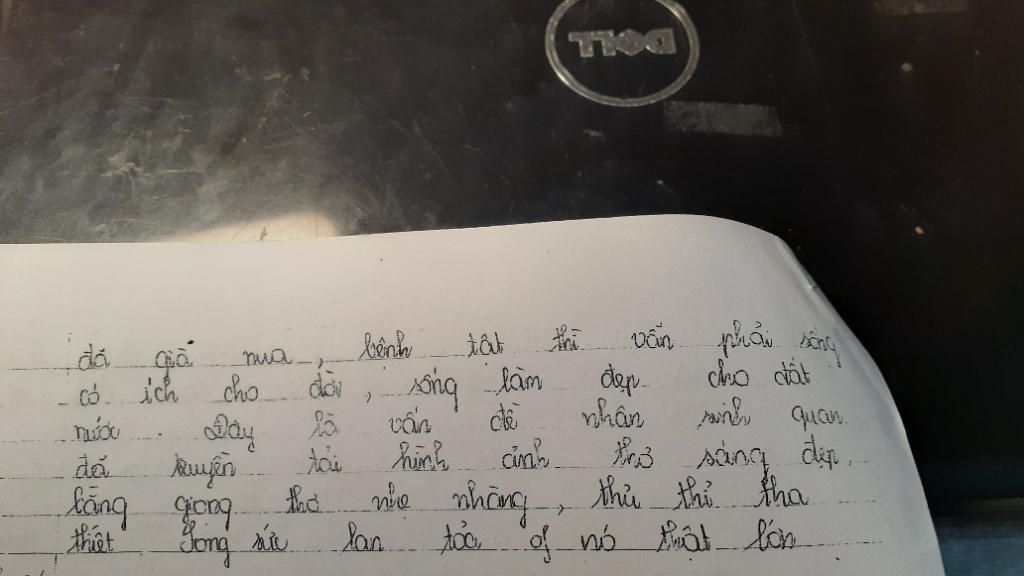 DELL
đã già nua, bệnh tật thì vẫn phải sống
có ích cho đời, sống làm đẹp cho đất
nước. Đây là vấn đề nhân sinh quan
đã truyền tải hình ảnh thơ sáng đẹp,
bằng giọng thơ nhẹ nhàng, thủ thỉ tha
thiết. Song sức lan tỏa of nó thật lớn